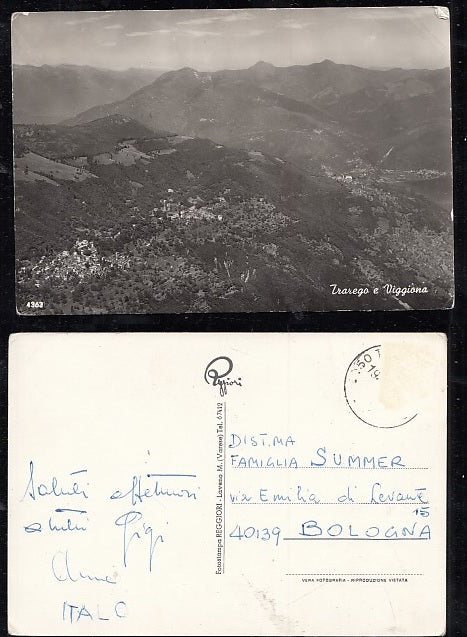 Trarego e Viggiona
4363
Reggiori
Fotostampa REGGIORI - Laveno M. (Varese) Tel. 67412
Saluti affettuosi
Gigi
ITALO
DIST.MA
FAMIGLIA SUMMER
via Emilia di Levante
15
40139 BOLOGNA
VERA FOTOGRAFIA - RIPRODUZIONE VIETATA